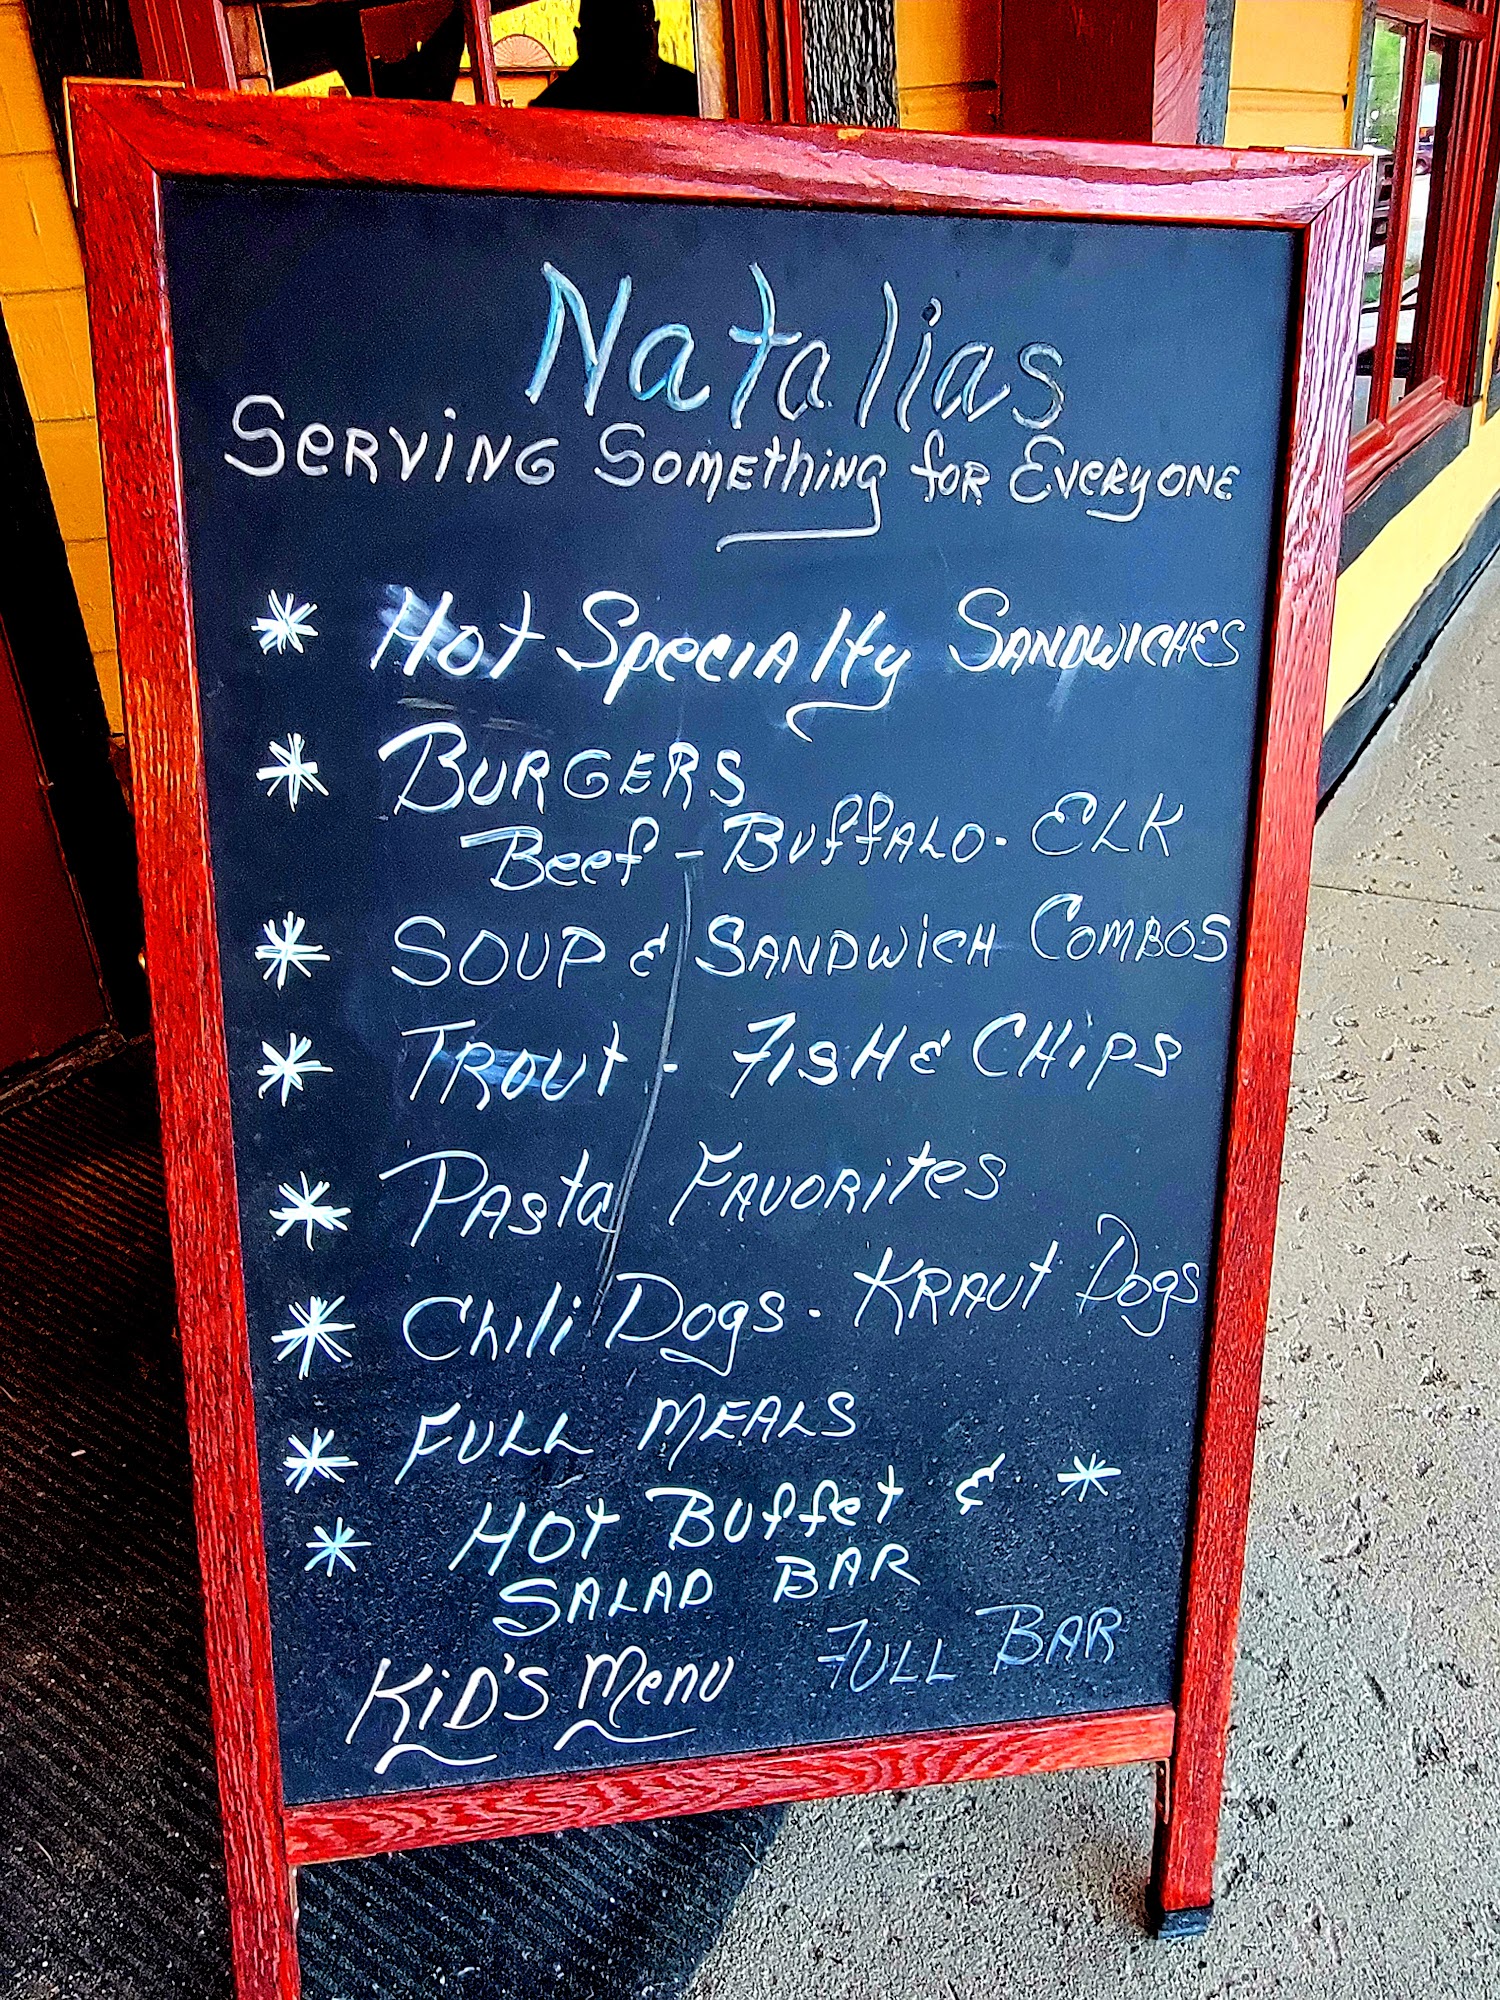 Natalias
Serving Something for Everyone
* Hot Specialty Sandwiches
* Burgers
Beef - Buffalo - Elk
* Soup & Sandwich Combos
* Trout - Fish & Chips
* Pasta Favorites
* Chili Dogs - Kraut Dogs
* Full Meals
* Hot Buffet & *
Salad Bar
Kid's Menu Full Bar